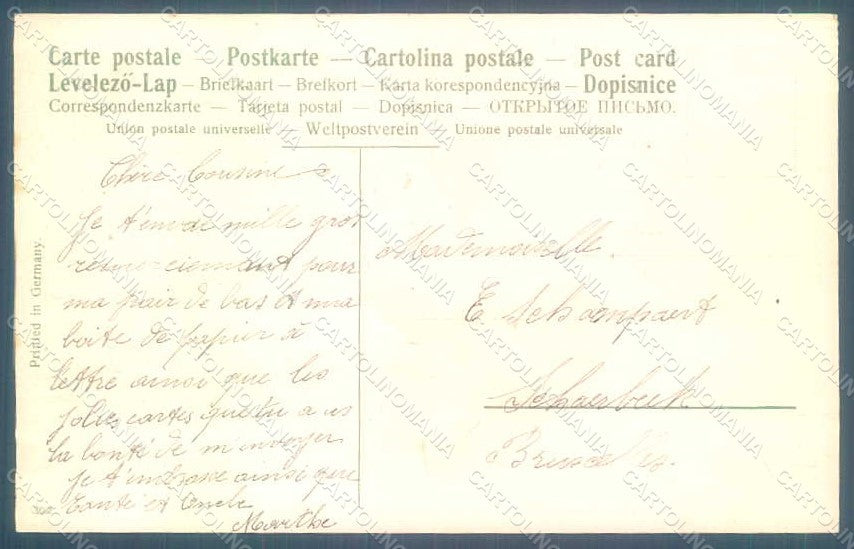 Carte postale — Postkarte — Cartolina postale — Post card
Levelező-Lap — Briefkaart — Brefkort — Karta korespondencyjna — Dopisnice
Correspondenzkarte — Tarjeta postal — Dopisnica — ОТКРЫТОЕ ПИСЬМО.
Union postale universelle — Weltpostverein — Unione postale universale
Chère Cousine
Je t'envoie mille gros
remerciemant pour
ma pair de bas et ma
boite de papier à
lettre ainsi que les
jolies cartes que tu a us
la bonté de m'envoyer
je t'embrasse ainsi que
tante et Oncle
Marthe
Mademoiselle
E Schampaert
Schaerbeek
Bruxelles.
Printed in Germany.
CARTOLINOMANIA